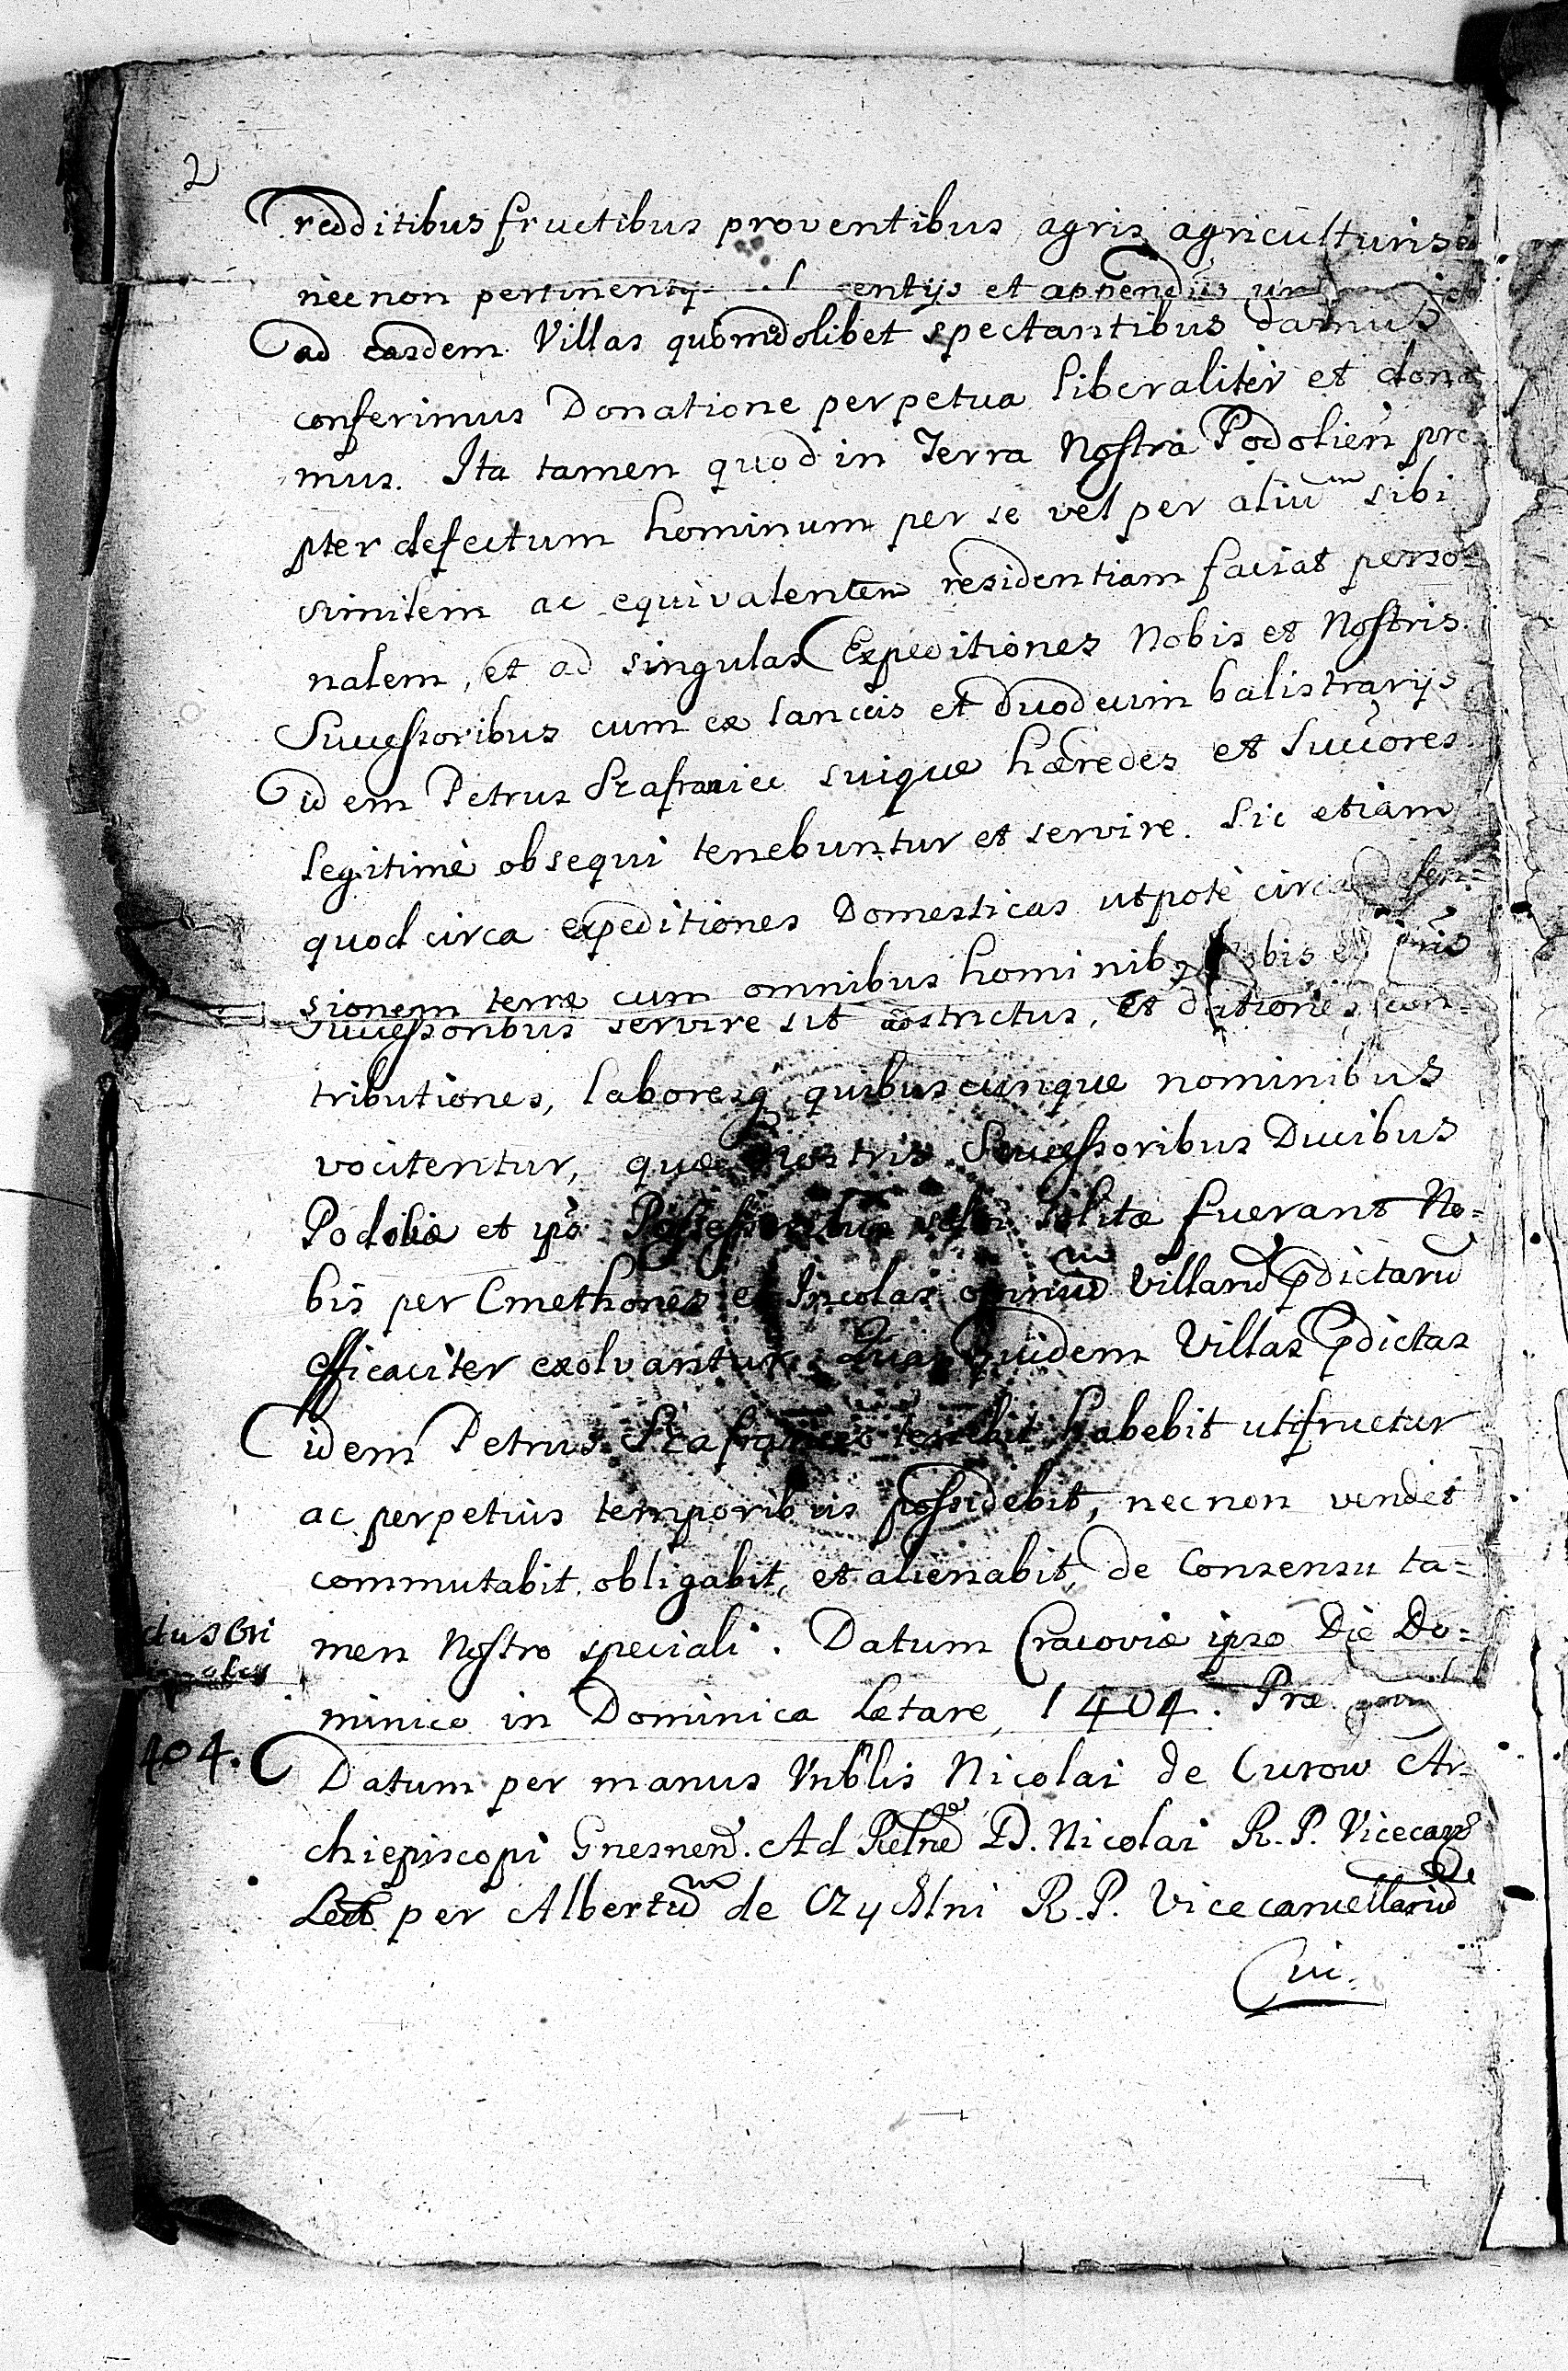 2
redditibus fructibus proventibus agris agriculturis
nec non pertinentijs entijs et appendijs
ad easdem Villas quomodolibet spectantibus damus
conferimus Donatione perpetua liberaliter et dona
mus. Ita tamen quod in Terra Nostra Podolien pro
pter defectum hominum per se vel per aliũm sibi
similem ac equivalentem residentiam faciat perso=
nalem, et ad singulas Expeditiones Nobis et Nostris
Successoribus cum ex lanceis et duodecim balistrarijs
idem Petrus Szafraniec suique hæredes et Succores
legitimè obsequi tenebuntur et servire. Sic etiam
quod circa expeditiones Domesticas utpotè circa defen=
sionem terræ cum omnibus hominibq Nobis et
Successoribus servire sit adstrictus, et dationes, con=
tributiones, laboresq quibuscunque nominibus
vocitentur, quæ nostris Successoribus Ducibus
Podoliæ et Possessoribus solitæ fuerant No=
bis per Cmethones et Incolas omniũm Villarũ pdictarũ
efficaciter exolvantur. Quas quidem Villas pdictas
idem Petrus Szafraniec tenebit habebit utifructur
ac perpetuis temporibus possidebit, nec non vendet
commutabit, obligabit, et alienabit, de Consensu ta=
men Nostro speciali. Datum Cracoviæ ipso Die Do=
minico in Dominica Lætare, 1404. Præ
Datum per manus Vnblis Nicolai de Curow Ar
chiepiscopi Gnesnen. Ad Rel͠ne D. Nicolai R. P. Vicecan
Lect. per Albertũm de R. P. Vicecancellariũ
404.